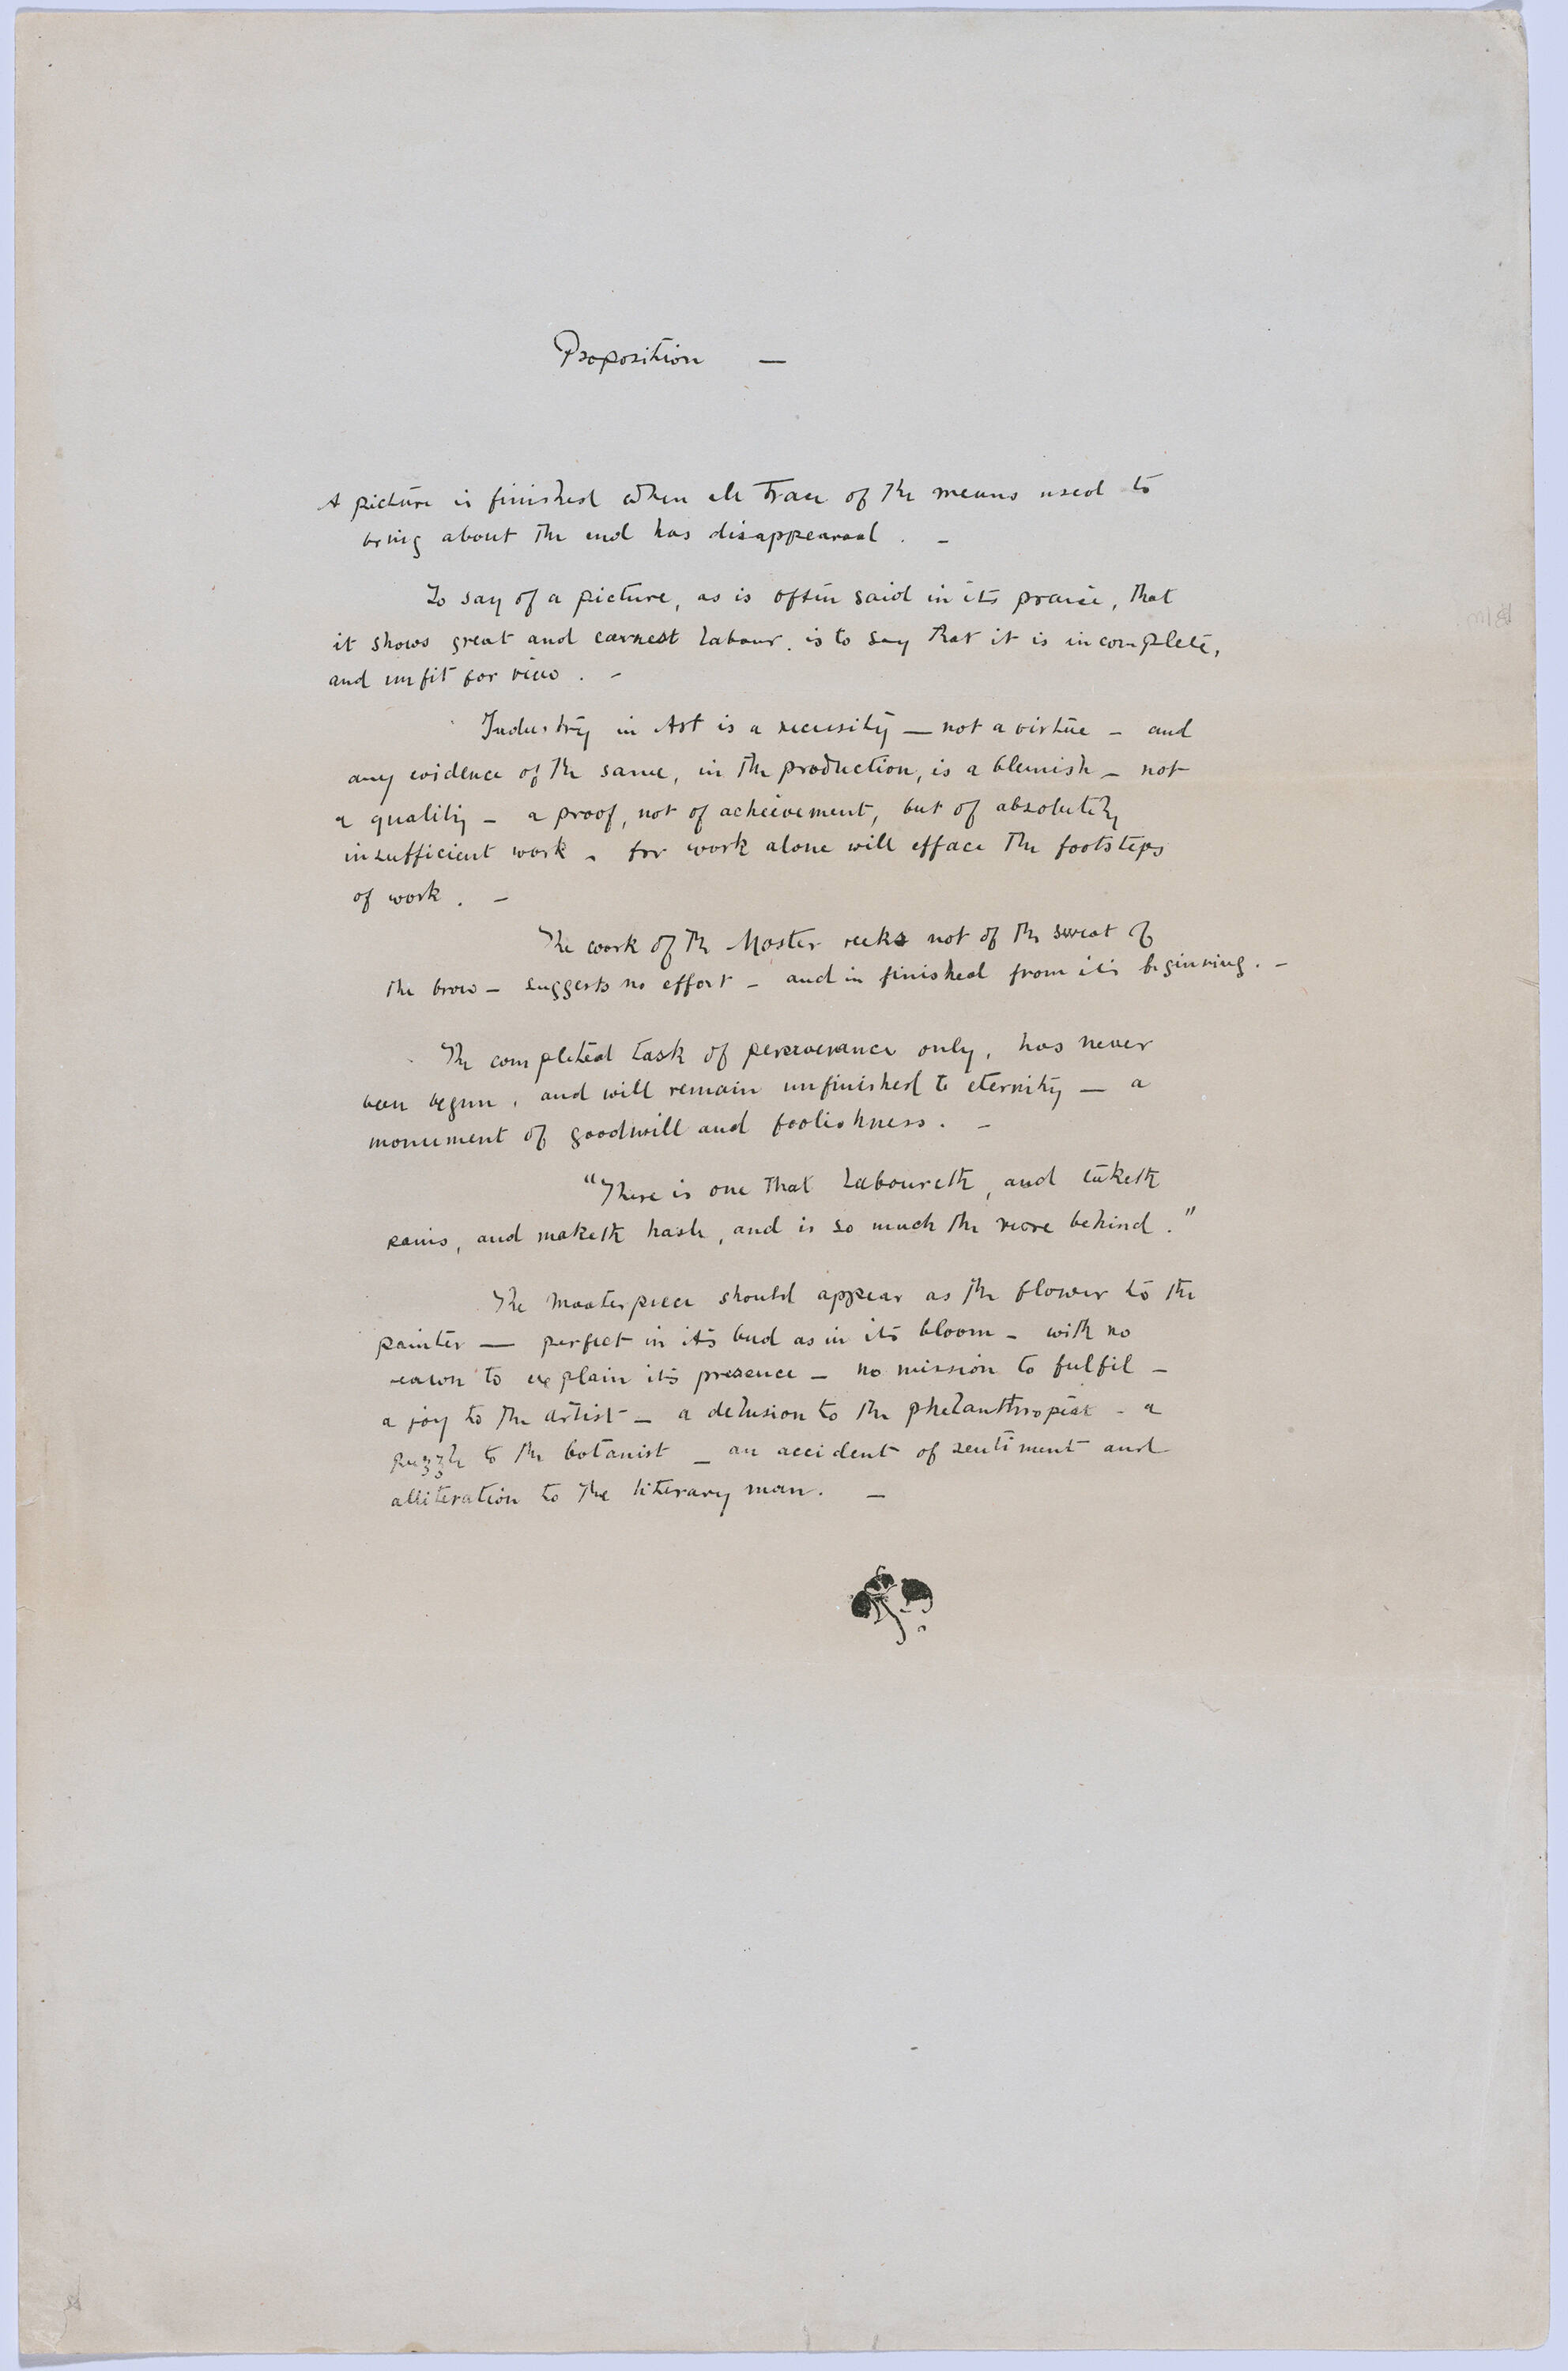 Proposition —
A picture is finished when all trace of the means used to
bring about the end has disappeared . –
To say of a picture, as is often said in its praise, that
it shows great and earnest labour, is to say that it is incomplete,
and unfit for view . –
Industry in Art is a necessity — not a virtue – and
any evidence of the same, in the production, is a blemish – not
a quality – a proof, not of acheivement, but of absolutely
insufficient work – for work alone will efface the footsteps
of work . –
The work of the Master reeks not of the sweat of
the brow – suggests no effort – and is finished from its beginning. –
The completed task of perseverance only, has never
been begun, and will remain unfinished to eternity — a
monument of goodwill and foolishness. –
"There is one that laboureth, and taketh
pains, and maketh haste, and is so much the more behind."
The masterpiece should appear as the flower to the
painter — perfect in its bud as in its bloom – with no
reason to explain its presence – no mission to fulfil –
a joy to the artist – a delusion to the philanthropist – a
puzzle to the botanist – an accident of sentiment and
alliteration to the literary man. –